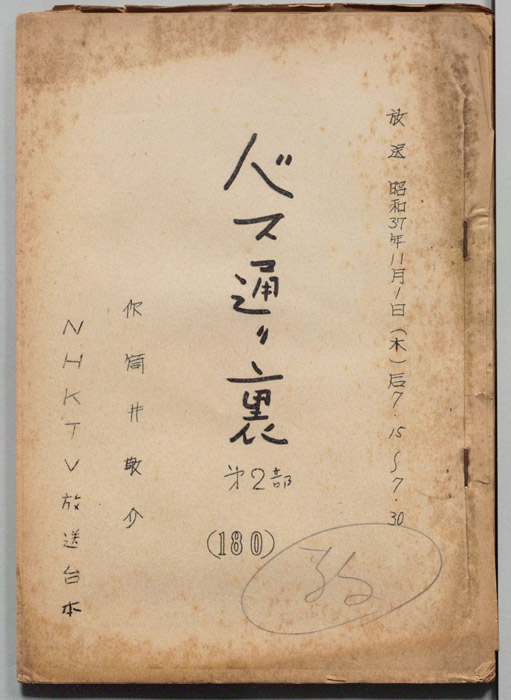 放送 昭和37年11月1日(木)后7.15~7.30
バス通り裏
第2部
(180)
作 筒井敬介
NHKTV放送台本